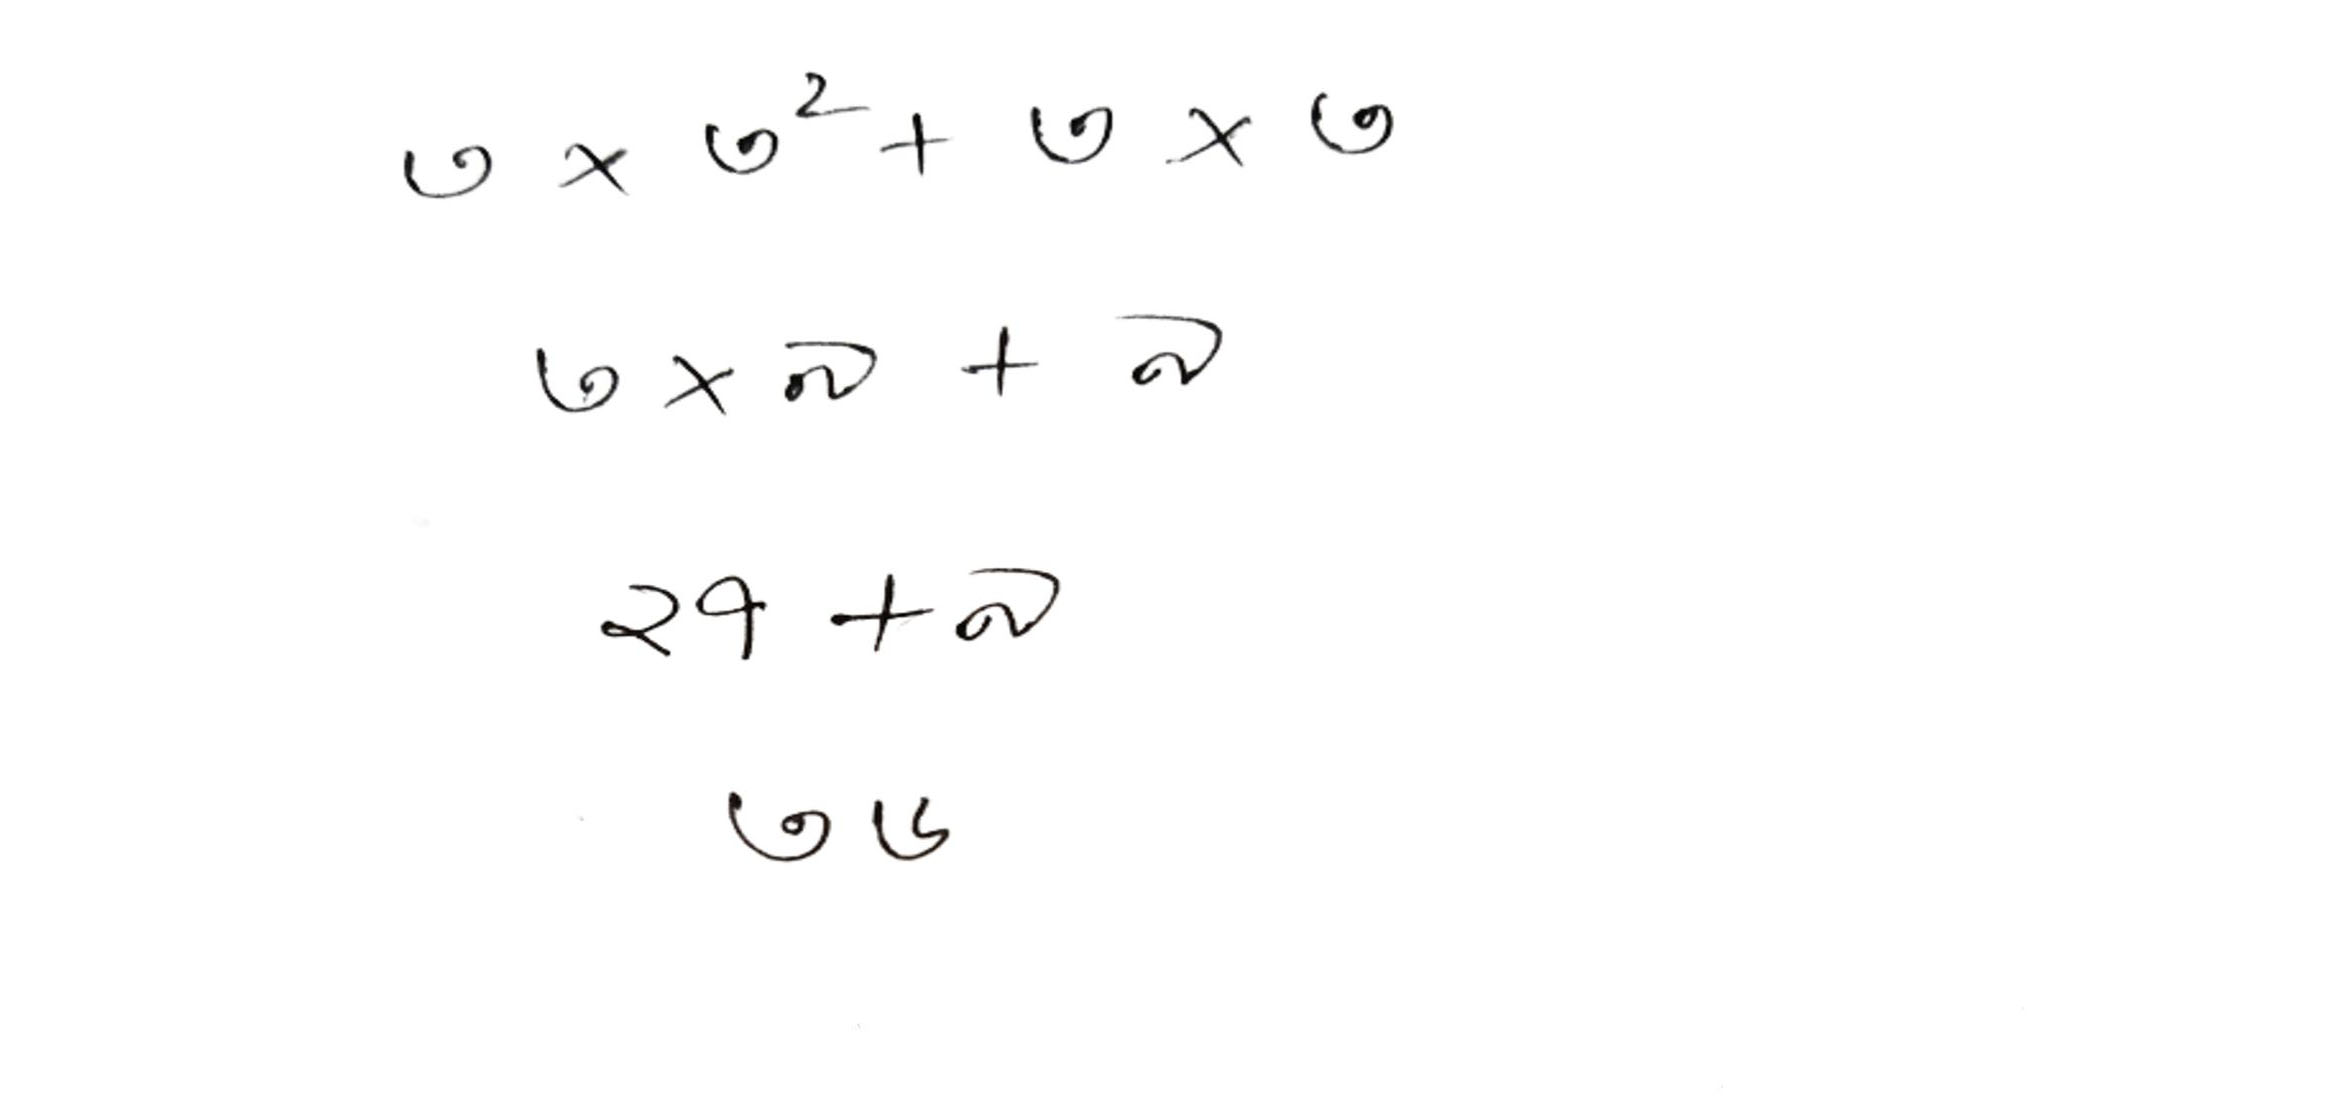 ৩ × ৩² + ৩ × ৩
৩ × ৯ + ৯
২৭ + ৯
৩৬